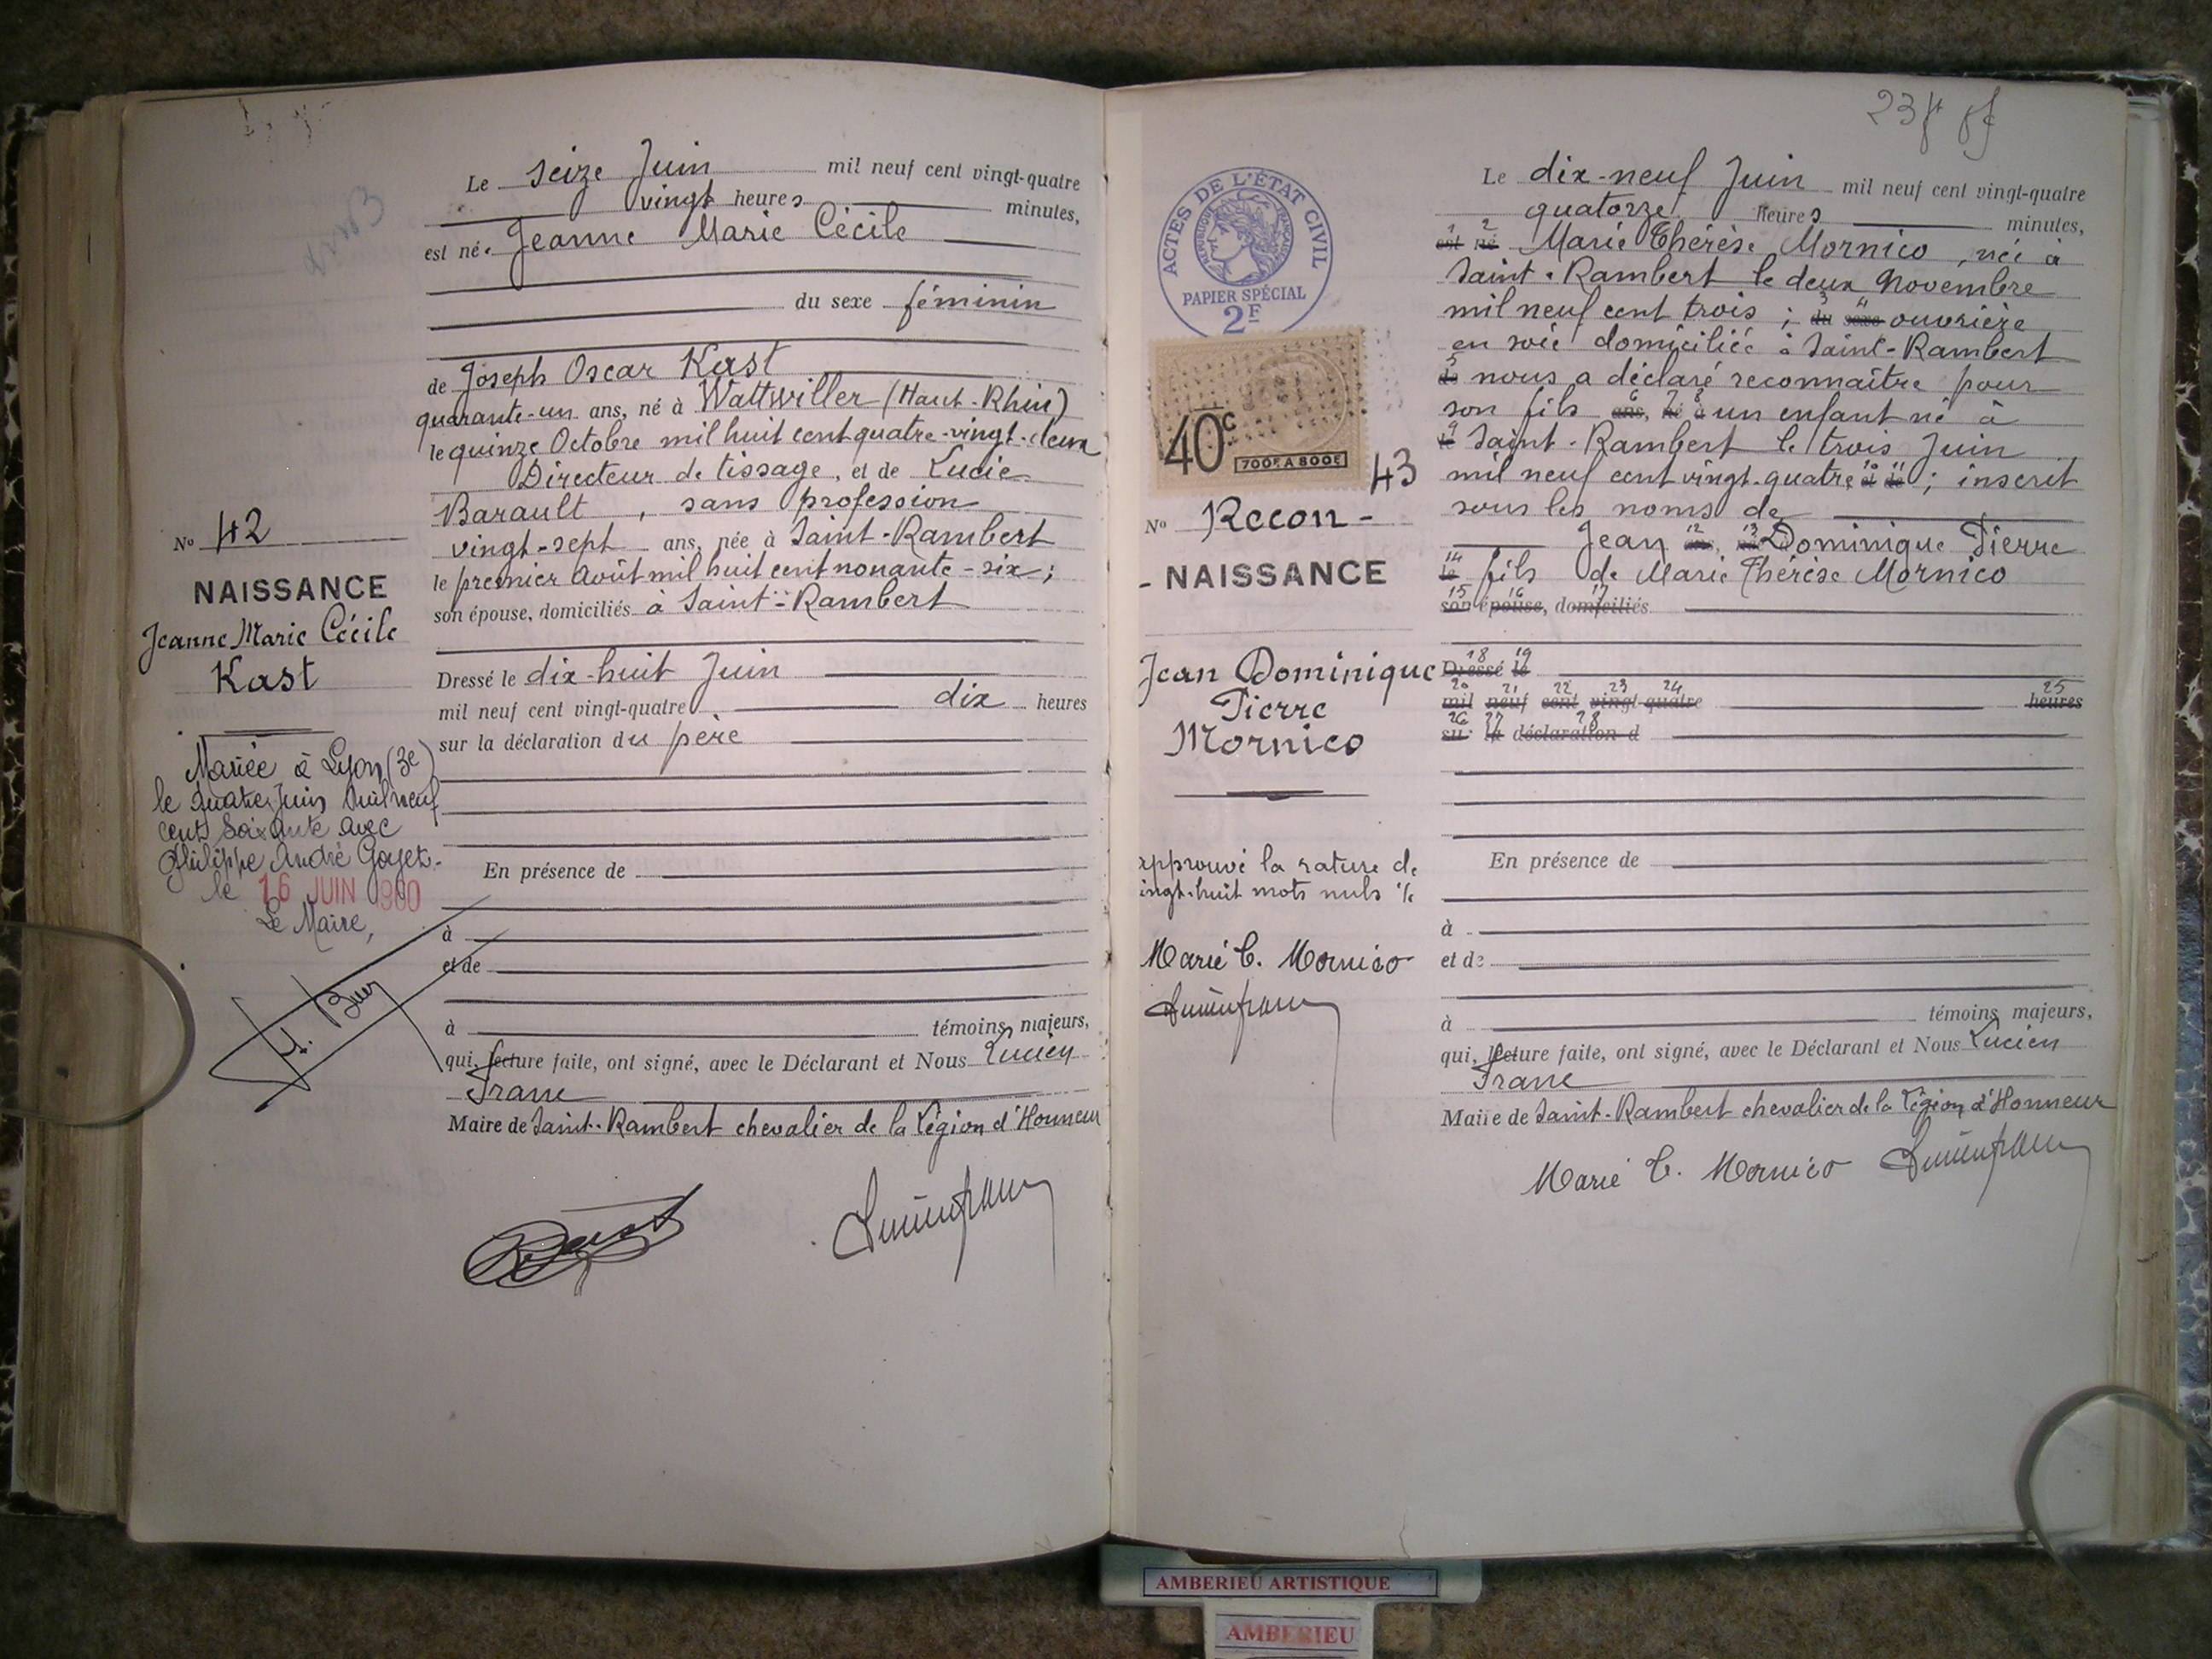 Le seize Juin mil neuf cent vingt-quatre
vingt heures minutes,
est née Jeanne Marie Cécile
du sexe féminin
de Joseph Oscar Kast
quarante-un ans, né à Wattwiller (Haut-Rhin)
le quinze Octobre mil huit cent quatre-vingt-deux
Directeur de tissage, et de Lucie
Barault, sans profession
vingt-sept ans, née à Saint-Rambert
le premier Août mil huit cent nonante-six;
son épouse, domiciliés à Saint-Rambert
Dressé le dix-huit Juin
mil neuf cent vingt-quatre dix heures
sur la déclaration du père
En présence de
à
et de
à témoins majeurs,
qui, lecture faite, ont signé, avec le Déclarant et Nous Lucien
Franc
Maire de Saint-Rambert chevalier de la Légion d'Honneur
No 42
NAISSANCE
Jeanne Marie Cécile
Kast
Mariée à Lyon (3e)
le quatre Juin mil neuf
cent soixante avec
Philippe André Goyet.
le 16 JUIN 1960
Le Maire,
23
ACTES DE L'ÉTAT CIVIL
RÉPUBLIQUE FRANÇAISE
PAPIER SPÉCIAL
2F
40c
700F. A 800F
43
No Recon-
-NAISSANCE
Jean Dominique
Pierre
Mornico
approuvé la rature de
ingt-huit mots nuls
Marie T. Mornico
Le dix-neuf Juin mil neuf cent vingt-quatre
quatorze heures minutes,
1 2
est né Marie Thérèse Mornico, née à
Saint-Rambert le deux Novembre
3 4
mil neuf cent trois; du sexe ouvrière
en soie domiciliée à Saint-Rambert
5
de nous a déclaré reconnaître pour
6 7 8
son fils ans, né à un enfant né à
9
le Saint-Rambert le trois Juin
10 11
mil neuf cent vingt-quatre et de; inscrit
sous les noms de
12 13
Jean ans, née Dominique Pierre
14
le fils de Marie Thérèse Mornico
15 16 17
son épouse, domiciliés
18 19
Dressé le
20 21 22 23 24 25
mil neuf cent vingt-quatre heures
26 27 28
sur la déclaration d
En présence de
à
et de
à témoins majeurs,
qui, lecture faite, ont signé, avec le Déclarant et Nous Lucien
Franc
Maire de Saint-Rambert chevalier de la Légion d'Honneur
Marie T. Mornico
AMBERIEU ARTISTIQUE
AMBERIEU